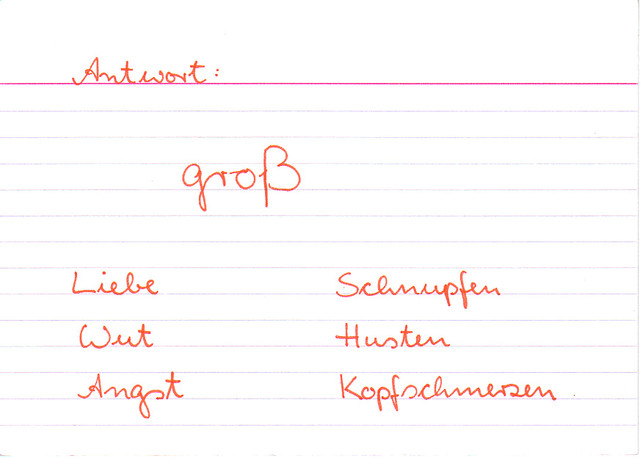 Antwort:
groß
Liebe Schnupfen
Wut Husten
Angst Kopfschmerzen